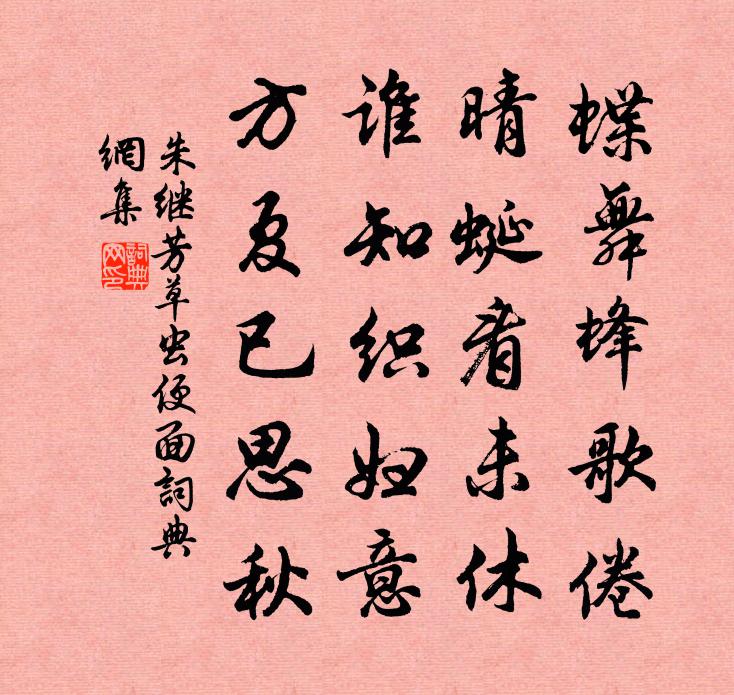 蝶舞蜂歌倦
晴蜓看未休
谁知织妇意
方夏已思秋
朱继芳草虫便面詞典
網集
詞典网印